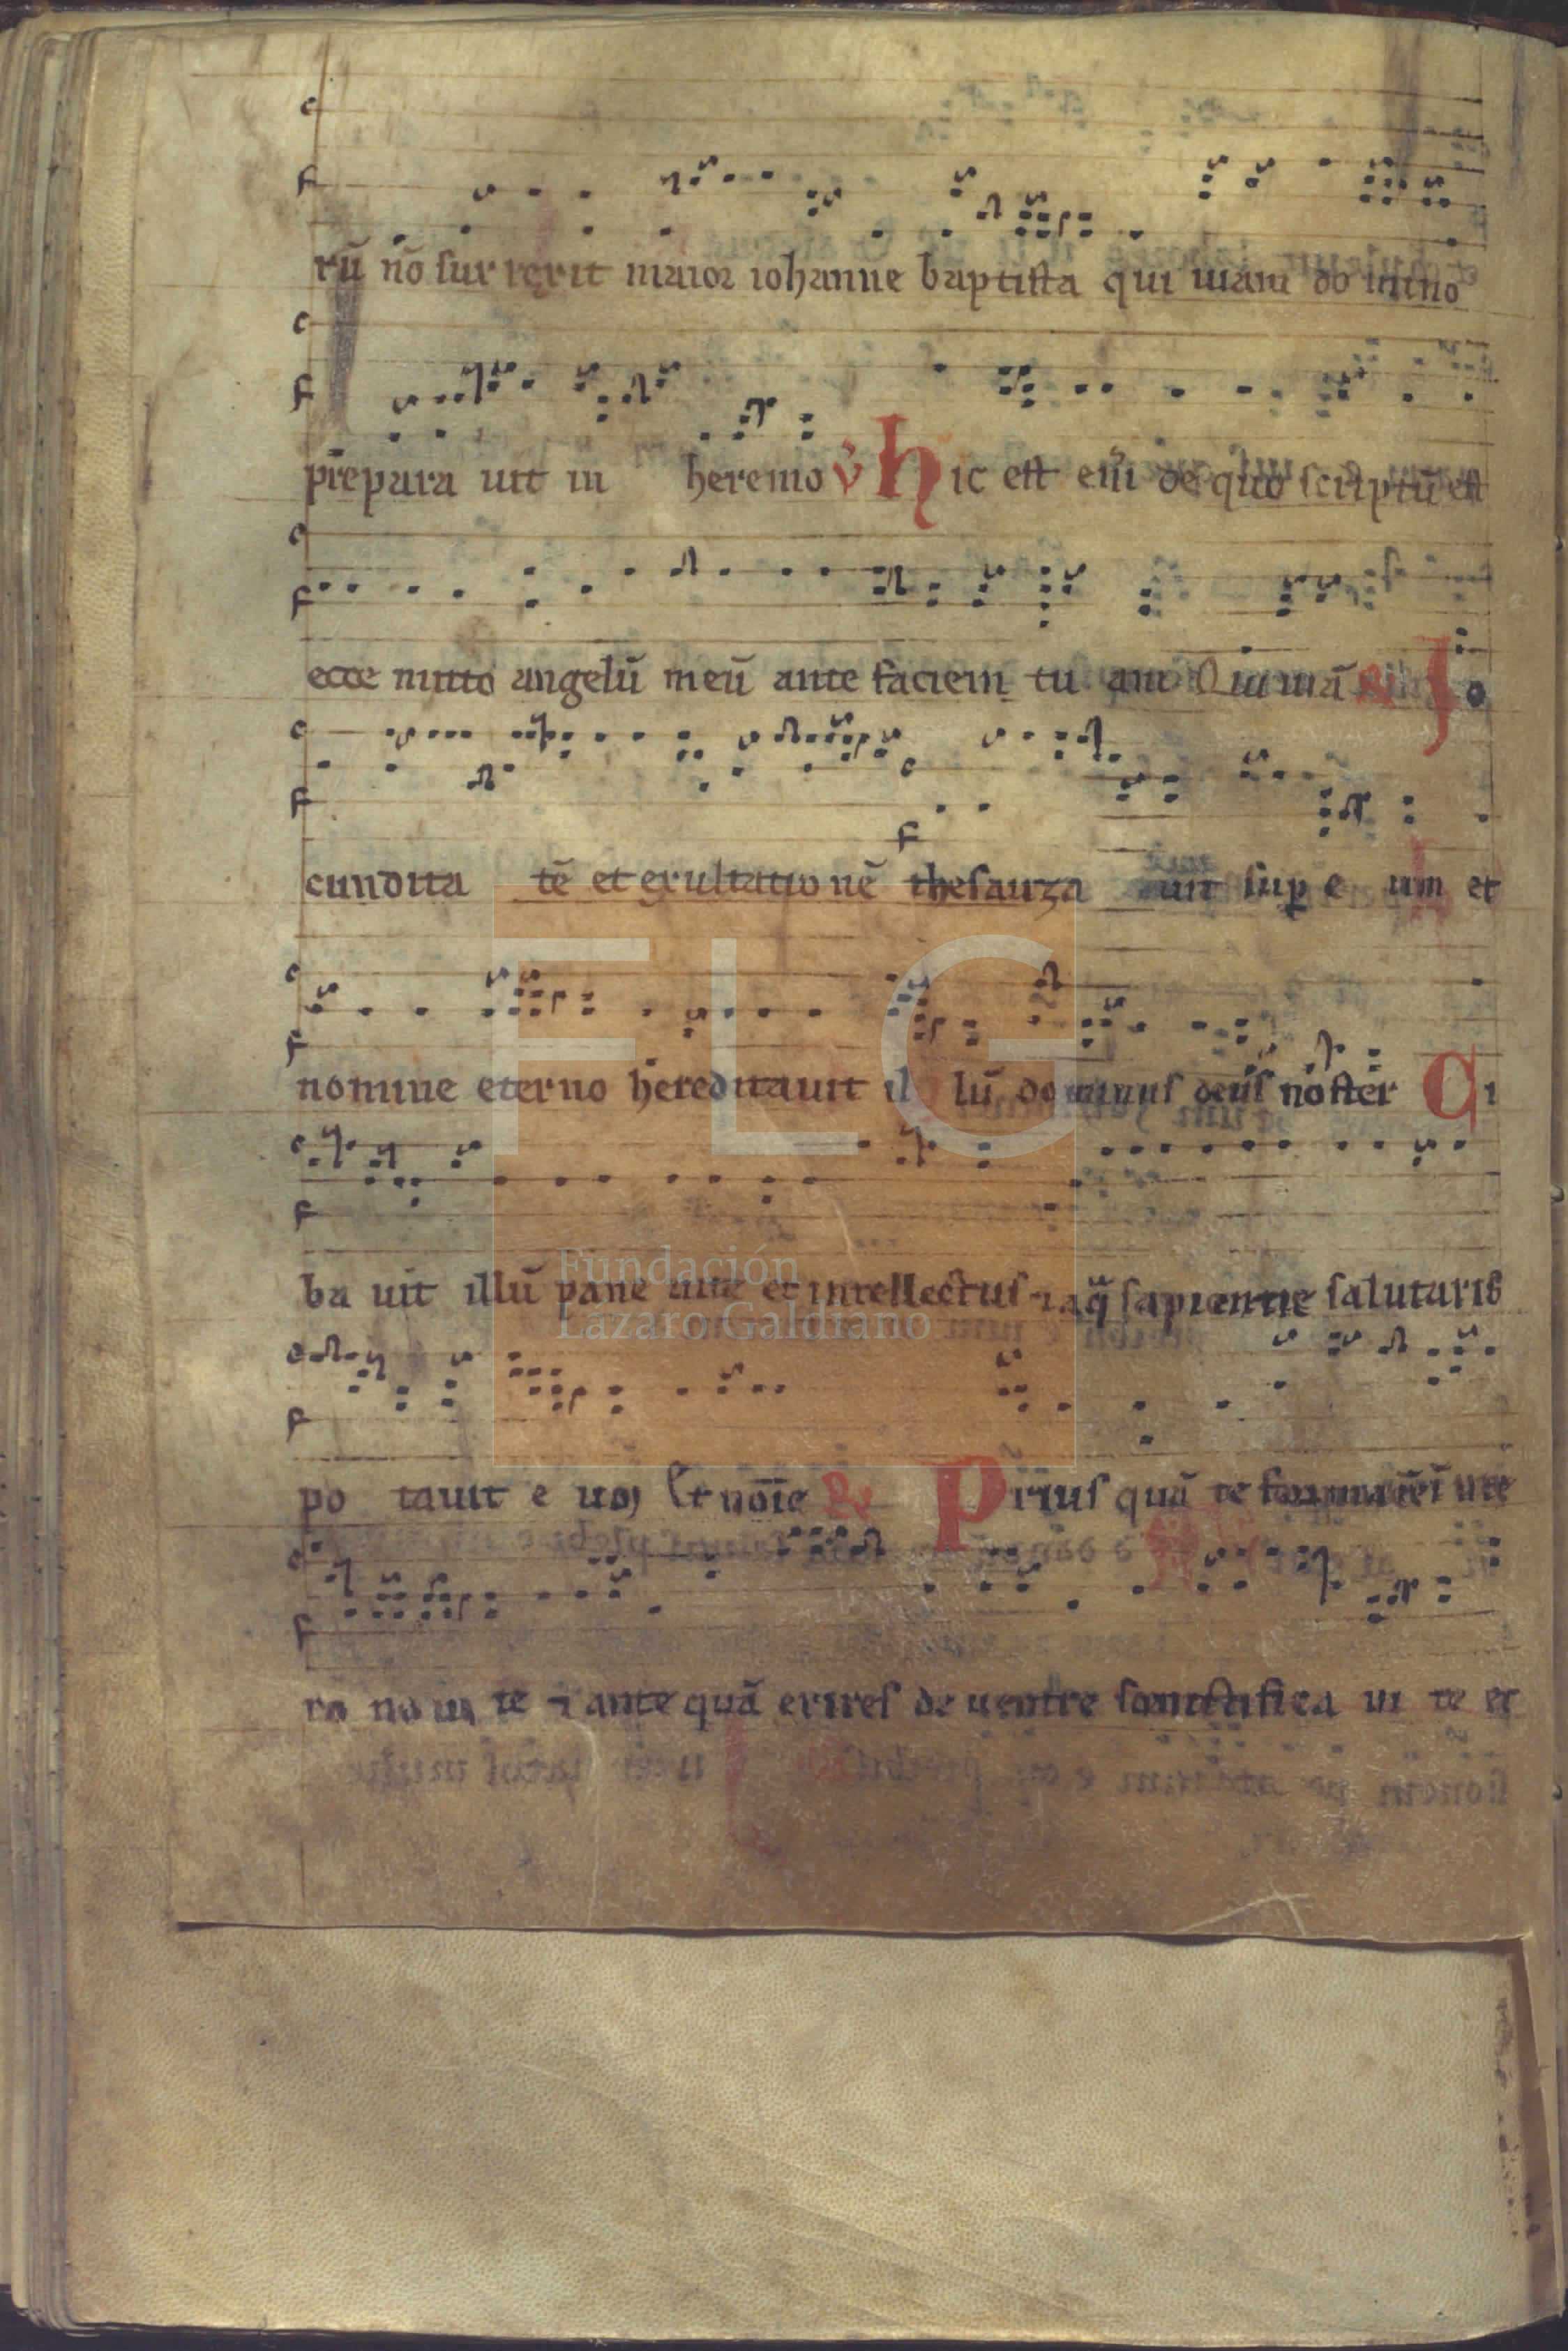 rū nō sur rexit maior iohanne baptista qui uiam do mino
prepara uit in heremo v̉ hic est eni de quo scriptū est
ecce mitto angelū meū ante faciem tu am Qui uiā R̸ Jo
cundita tē et exultatio nē thesauriza uit sup e um et
nomine eterno hereditauit il lū dominus deus noster Ci
ba uit illū pane uite et intellectus ⁊ aq̄ sapientie salutaris
po tauit e um Et noīe R̸ Prius quā te formarē in ute
ro noui te ⁊ ante quā exires de uentre sanctifica ui te et
FLG
Fundación
Lázaro Galdiano